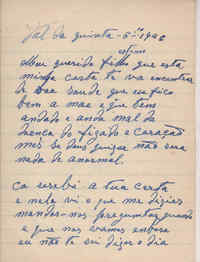 Val da quinta - 5
Meu querido filho que esta
minha carta te va encontrar
de boa saude que eu fico
bem a mae que bem
andado e anda mal da
doença do figado e coração
mes se Deus quizer não sera
nada de anormal.
ca recebi a tua carta
e nela vi o que me dizies
mandas-nos preguntar quando
e que nos vamos embora
eu não te sei dizer o dia